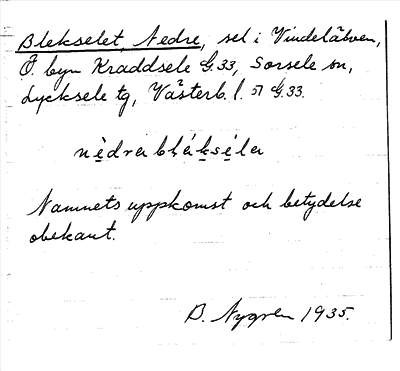 Blekselet, Nedre, sel i Vindelälven,
Ö. byn Kraddsele G.33, Sorsele sn,
Lycksele tg, Västerb. l. 57 G.33.
nèdrabḷákse̯la
Namnets uppkomst och betydelse
obekant.
B. Nygren 1935.